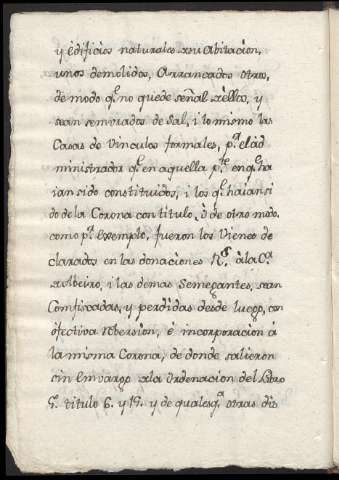 y edificios naturales xsu Abitacion,
unos demolidos, Arrancados otros,
de modo q.e no quede señal xellos, y
sean semvrados de Sal, i lo mismo las
Casas de Vinculos formales, p.a el ad
ministrador q.e en aquella p.te en q.e ha
ian sido constituidos, i los q.e haian si
do de la Corona con titulo, ò de otro modo.
como p.r exemplo, fueron los Vienes de
clarados en las donaciones R.s à la C.a
xAlveiro, i las demas Semegantes, sean
Comfiscadas, y perdidas desde luego, con
efectiva Rebersion, è incorporacion à
la misma Corona, de donde salieron
sin Emvargo xla Ordenacion del Libro
5.º titulo 6. y 15. y de qualesq.a otras dis